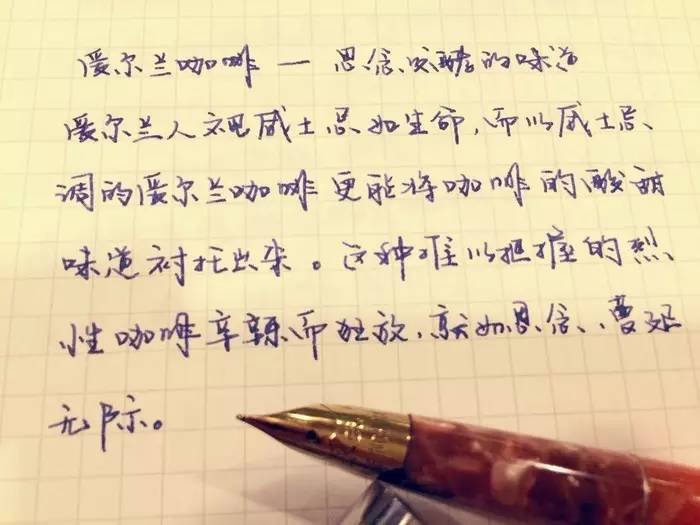 爱尔兰咖啡 — 思念发酵的味道
爱尔兰人视威士忌如生命,而以威士忌
调的爱尔兰咖啡更能将咖啡的酸甜
味道衬托出来。这种难以把握的烈
性咖啡辛辣而狂放,就如思念、蔓延
无际。